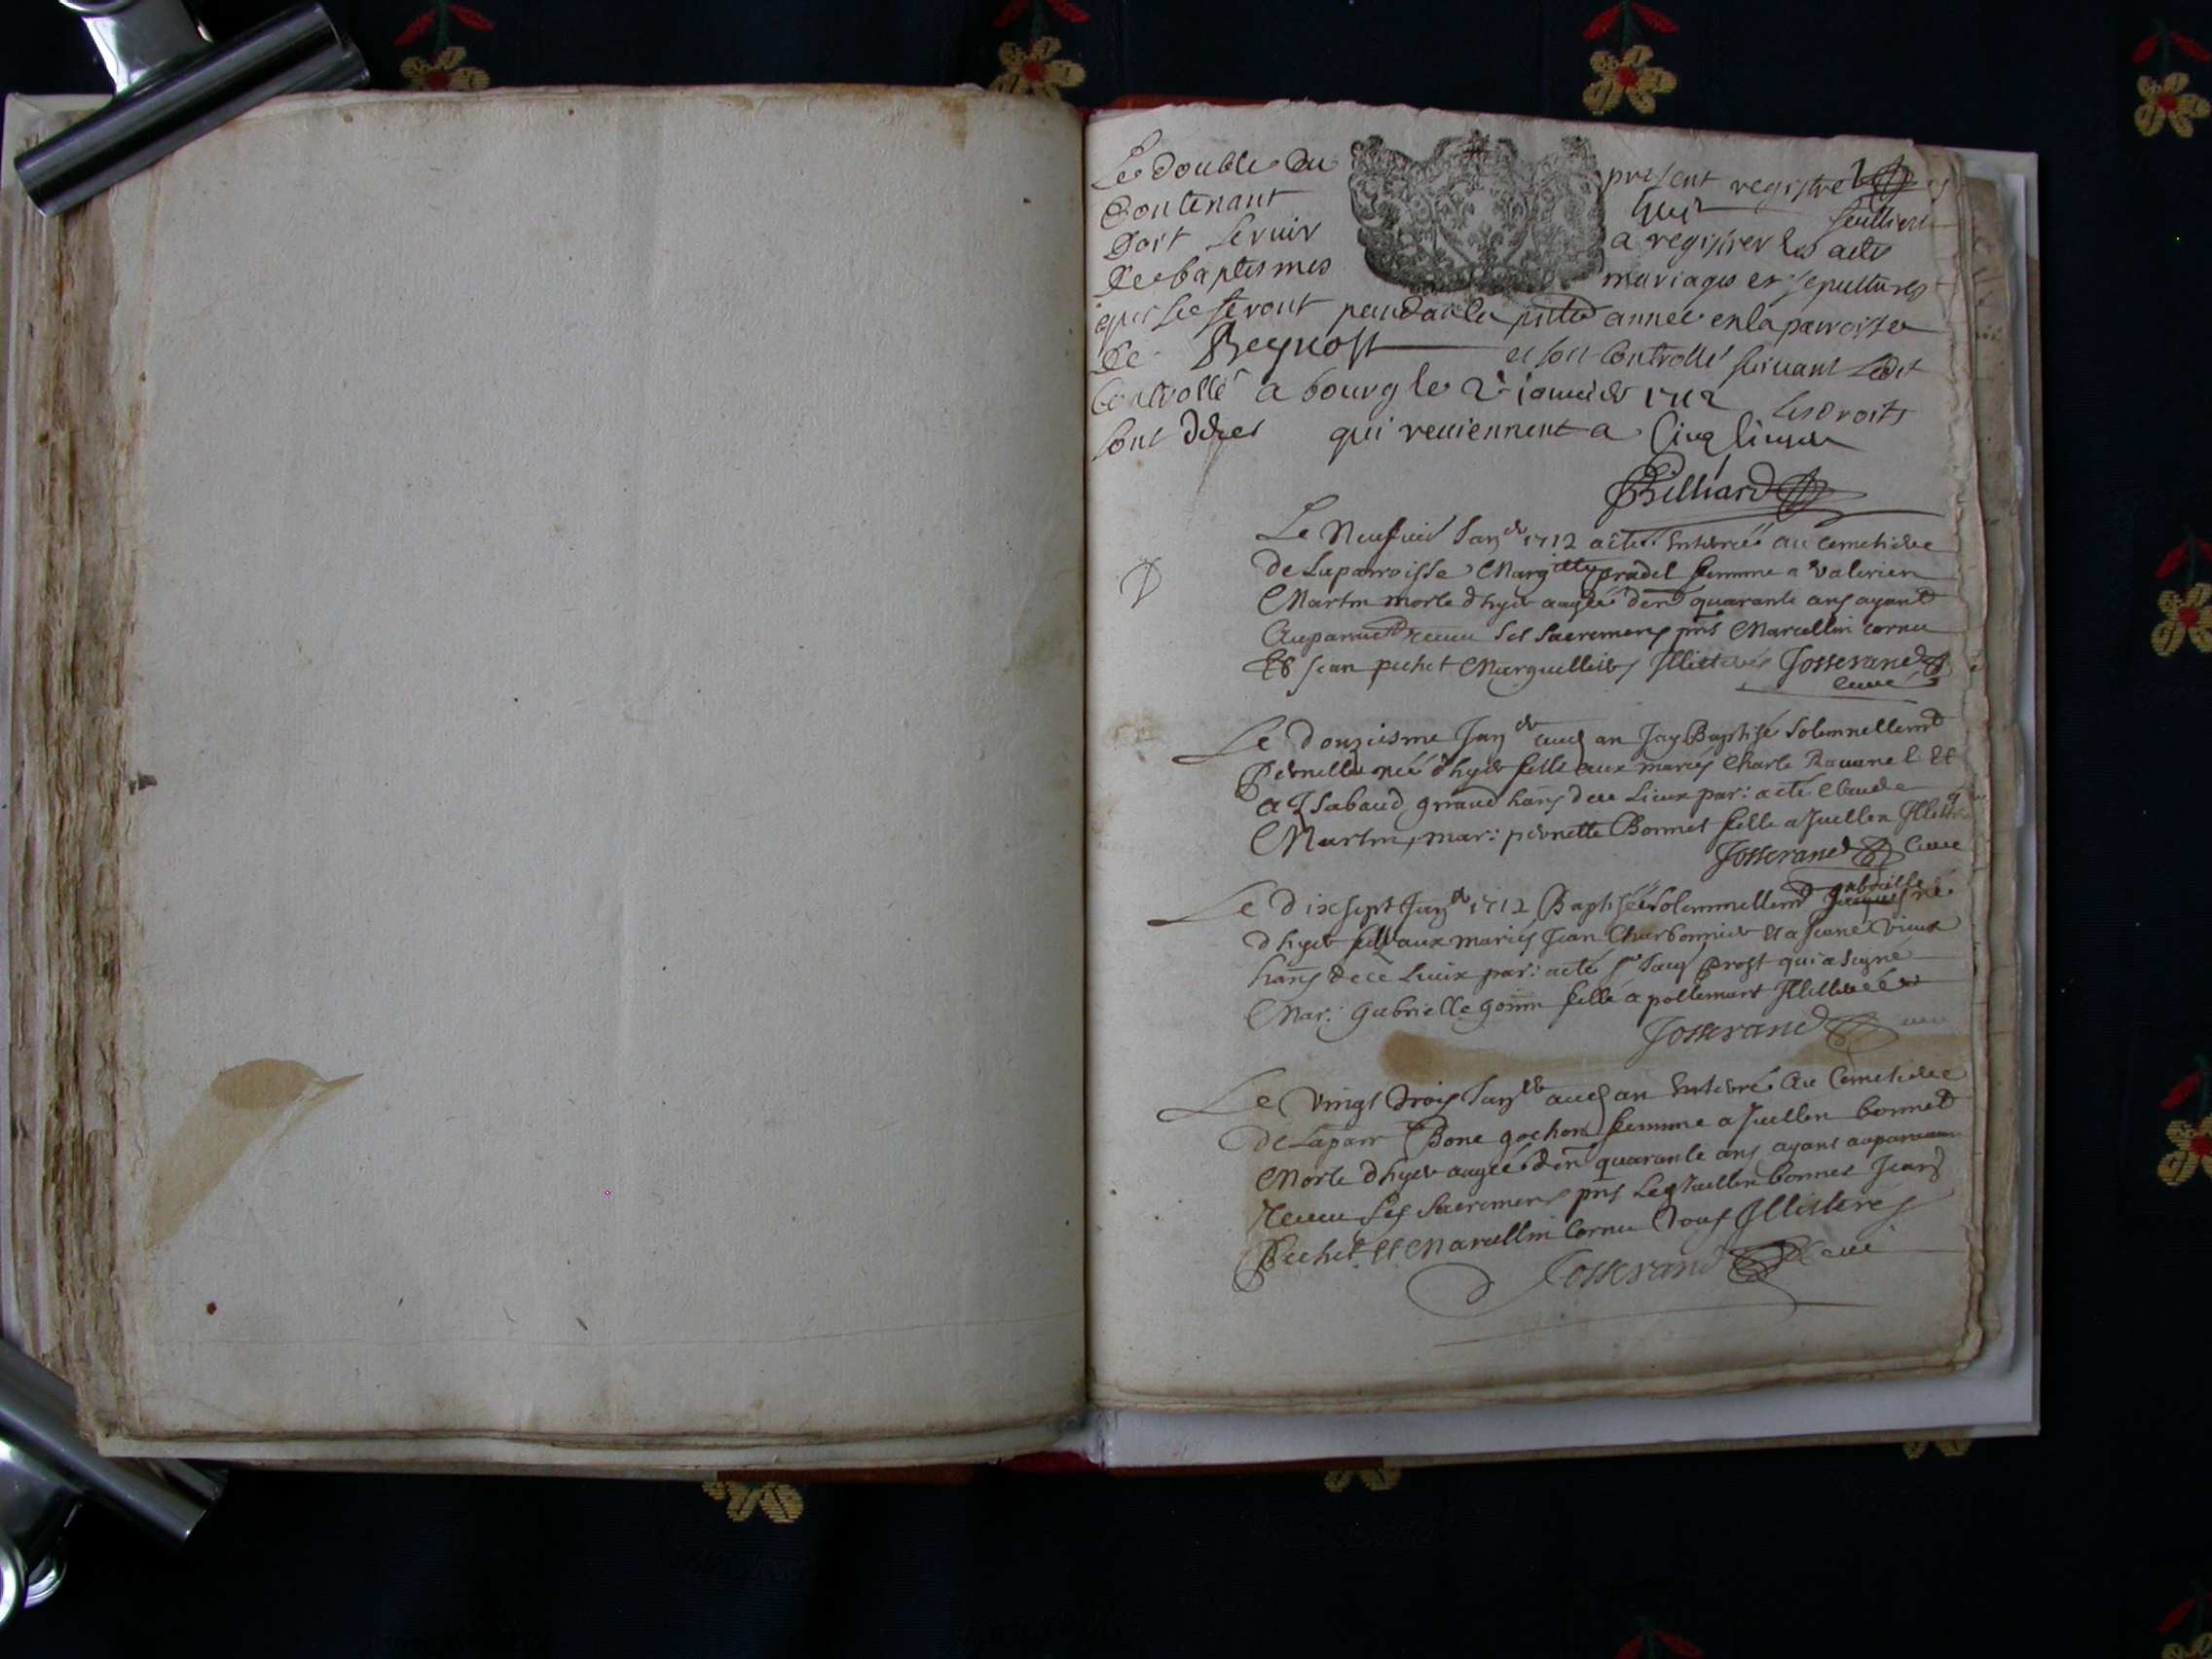 Le double du present registre
Contenant huit feuillets
Doit servir a registrer les actes
de baptesmes mariages et sepultures
qui se feront pendant la pnte annee en la parroisse
de Beynost et soit controllé suivant ledit
Controllé a bourg le 2e janvier 1712 les droits
sont qui reviennent a Cinq livres
Billiard
Le Neufvie Janer 1712 a eté Enterrée au cemetiere
de La parroisse Margtte pradel femme a valerien
Martin morte d'hyer aagée d'en quarante ans ayant
Auparavt receu ses sacremens pns Marcellin cornu
Et jean pechet Marguelliers Illiterés Josserand
curé
Le Douziesme Janer aud an Jay Baptisé Solemnellemt
Pernette née d'hyer fille aux mariés Charle Ravanel Et
a Isabaud grand hans de ce Lieux par: a eté Claude
Martin, mar: pernette Bonnet fille a Juellen
Josserand Curé
Le Dix sept Janer 1712 Baptisée Solemnellemt gabrielle née
d'hyer fille aux mariés Jean Charbonnier et a Jeanne vieux
hans de ce Lieux par: a eté sr Jacq prost qui a signé
Mar: gabrielle goiin fille a pollemart Illiterée
Josserand curé
Le vingt trois Janer aud an Enterré au Cemetiere
de La parr Bone gochon femme a Juellen bonnet
Morte d'hyer aagée d'en quarante ans ayant auparavant
Receu ses sacremens pns Led Juellen bonnet Jean
Pechet et Marcellin Cornu tous Illiterés
Josserand curé